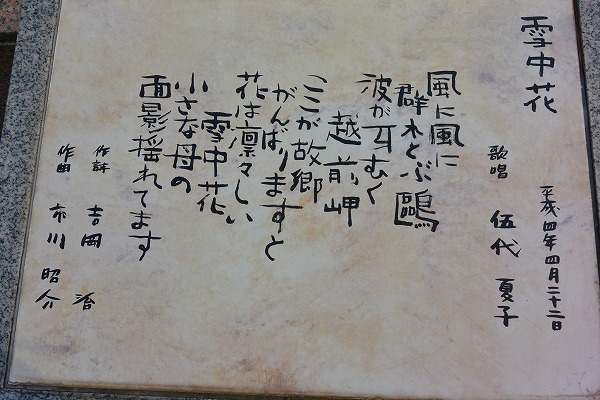 雪中花
平成四年四月二十二日
歌唱 伍代夏子
風に風に
群れとぶ鷗
波が牙むく
越前岬
ここが故郷
がんばりますと
花は凛々しい
雪中花
小さな母の
面影揺れてます
作詩 吉岡治
作曲 市川昭介